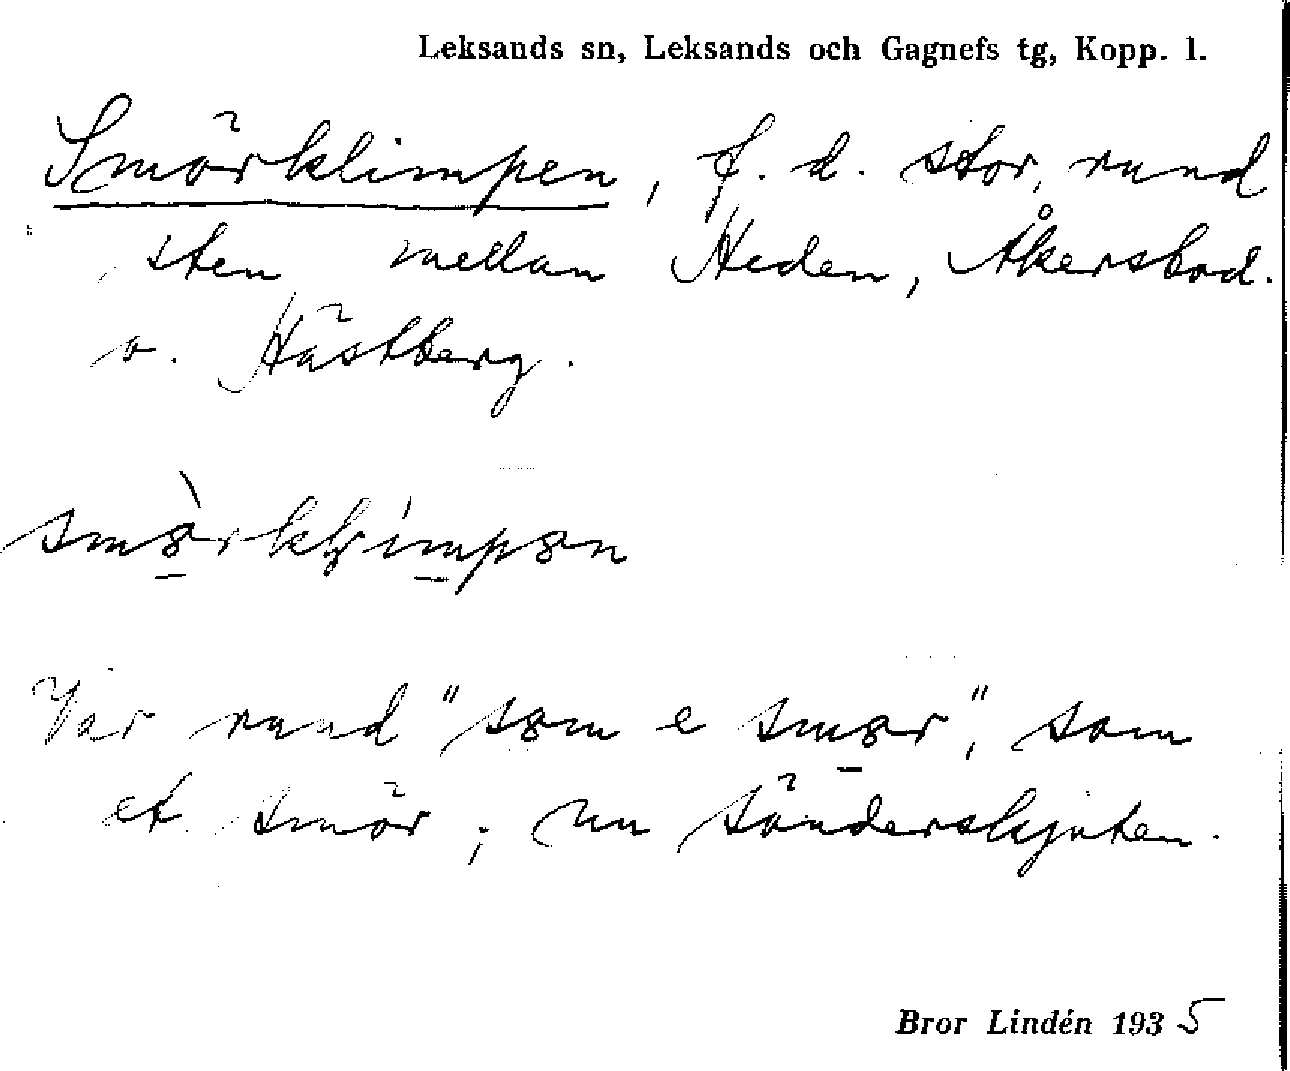 Leksands sn, Leksands och Gagnefs tg, Kopp. l.
Smörklimpen, f. d. stor, rund
sten mellan Heden, Åkersbod.
o. Hästberg.
Var rund "som e smør", som
et smör; nu sönderskjuten.
Bror Lindén 1935